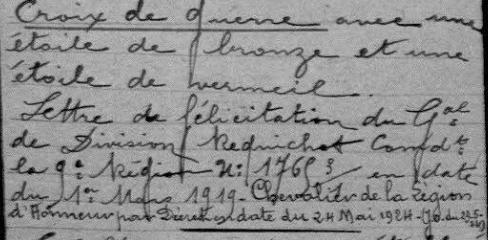 Croix de guerre avec une
étoile de bronze et une
étoile de vermeil.
Lettre de félicitation du Gal
de Division Comdt
la 9e Région N: 1769 en date
du 1er Mars 1919 - Chevalier de la Légion
d'Honneur par Décret en date du 24 Mai 1924 - (JO. du